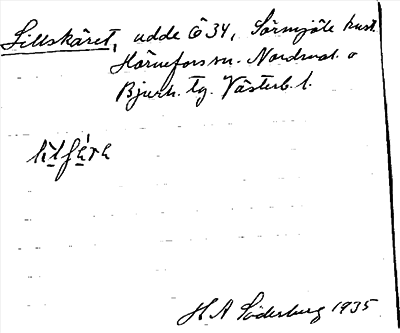 Sillskäret, udde Ö 34, Sörmjöle kust.
Hörnefors sn. Nordmal. o
Bjurh. tg. Västerb. l.
H A Söderburg 1935